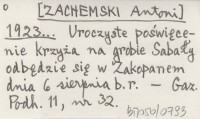 [ZACHEMSKI Antoni]
1923... Uroczyste poświęce-
nie krzyża na grobie Sabały
odbędzie się w Zakopanem
dnia 6 sierpnia b.r. — Gaz.
Podh. 11, nr 32.